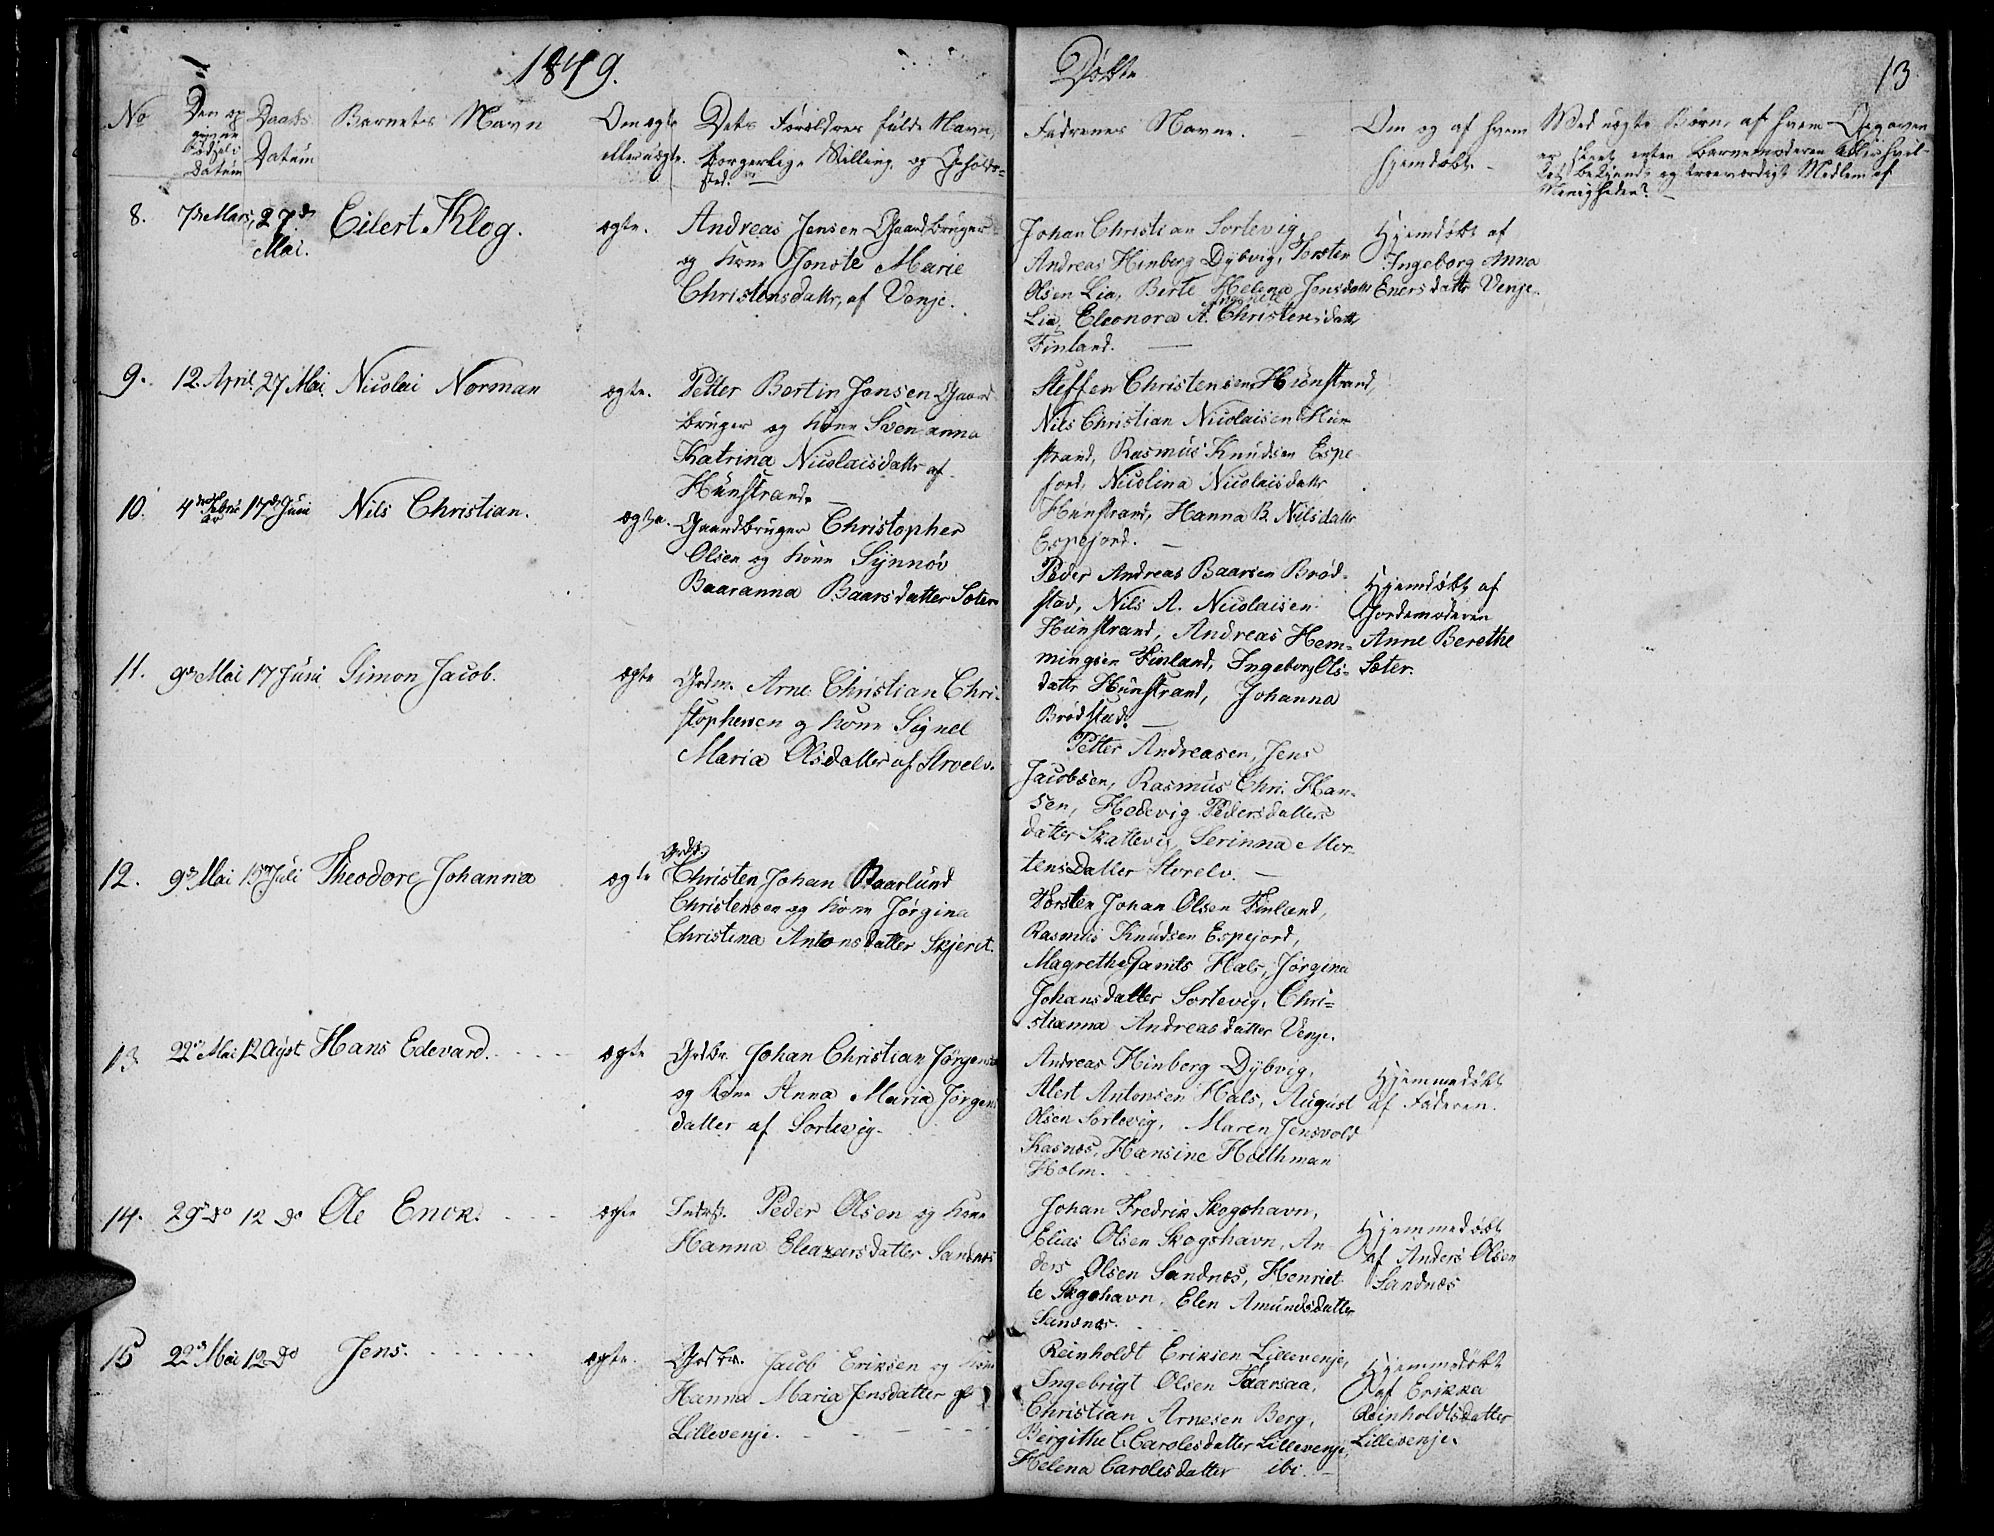 1849.
Døbte
13
No
Den op
givne
Fødsels
Datum
Daabs
Datum
Barnets Navn
Om ægte
eller uægte.
Dets Forældres fulde Navn,
borgerlige Stilling og Opholds-
sted.
Fadernes Navne.
Om og af hvem
hjemdøbt.
Med uægte Børn, af hvem Opgaven
er skeet, enten Barnemoderen eller hvil-
ket bekjendt og troeværdigt Medlem af
Menigheden?
8. 7de Mars, 27de
Mai.
Eilert Klog.
ægte.
Andreas Jensen Gaardbruger
og Kone Jonete Marie
Christensdattr, af Venje.
Johan Christian Sortevig
Andreas Hinberg Dybvig, Torsten
Olsen Lia, Berte Helena Jonsdattr
Lia, Eleonora A. Christensdattr
Finland.
Hjemdøbt af
Ingeborg Anna
Enersdattr Venje.
9. 12. April, 27 Mai. Nicolai Norman
ægte.
Petter Bertin Jensen Gaard
bruger og Kone Svenanna
Katrina Nicolaisdattr af
Hunstrand.
Steffen Christensen Hunstrand,
Nils Christian Nicolaisen Hun
strand, Rasmus Knudsen Espe
jord, Nicolina Nicolaisdattr
Hunstrand, Hanna B. Nilsdattr
Espejord.
10. 4de Febru
ar 17de Juni Nils Christian.
ægte.
Gaardbruger Christopher
Olsen og Kone Synnøv
Baaranna Baarsdatter Sæter
Peder Andreas Baarsen Brød-
stad, Nils A. Nicolaisen
Hunstrand, Andreas Hem-
mingsen Finland, Ingeborg Ols-
dattr Hunstrand, Johanna
Brødstad.
Hjemdøbt af
Jordemoderen
Anne Berethe
Sæter.
11. 9de Mai 17 Juni Simon Jacob.
ægte
Grdm. Arne Christian Chri-
stophersen og Kone Signel
Maria Olsdatter af Storelv.
Petter Andreasen, Jens
Jacobsen, Rasmus Chri. Han-
sen, Hedevig Pedersdatters
datter Skattevig, Serinna Mor-
tensdatter Storelv.
12. 9de Mai 15de Juli Theodore Johanna
ægte
Grdbr.
Christen Johan Baarlund
Christensen og Kone Jørgina
Christina Antonsdatter Skjerit.
Torsten Johan Olsen Finland,
Rasmus Knudsen Espejord,
Magrethe Gamts Hals, Jørgina
Johansdatter Sortevig, Chri-
stianna Andreasdatter Venje.
13. 22de Mai 12 August Hans Edevard.
ægte
Grdbr. Johan Christian Jørgensen
og Kone Anna Maria Jørgens
datter af Sortevig.
Andreas Hinberg Dybvig,
Alert Antonsen Hals, August
Olsen Sortevig, Maren Jensvold
Kasnæs, Hansine Holthman
Holm.
Hjemmedøbt
af Faderen.
14. 29de do 12 do Ole Enok.
ægte
Inderst. Peder Olsen og Kone
Hanna Eleazarsdatter Sandnes
Johan Fredrik Skogshavn,
Elias Olsen Skogshavn, An
ders Olsen Sandnæs, Henriet
te Skgshavn, Elen Amundsdatter
Sandnæs.
Hjemmedøbt
af Anders Olsen
Sandnæs
15 22de Mai 12 do Jens.
ægte.
Grdbr. Jacob Eriksen og Kone
Hanna Maria Jensdatter af
Lillevenje.
Reinholdt Eriksen Lillevenje,
Ingebrigt Olsen Faarsaa,
Christian Arnesen Berg,
Bergithe C. Carolesdatter Lillevenje,
Helena Carolesdatter ibi.
Hjemmedøbt
af Erikka
Reinholdtsdatter
Lillevenje.